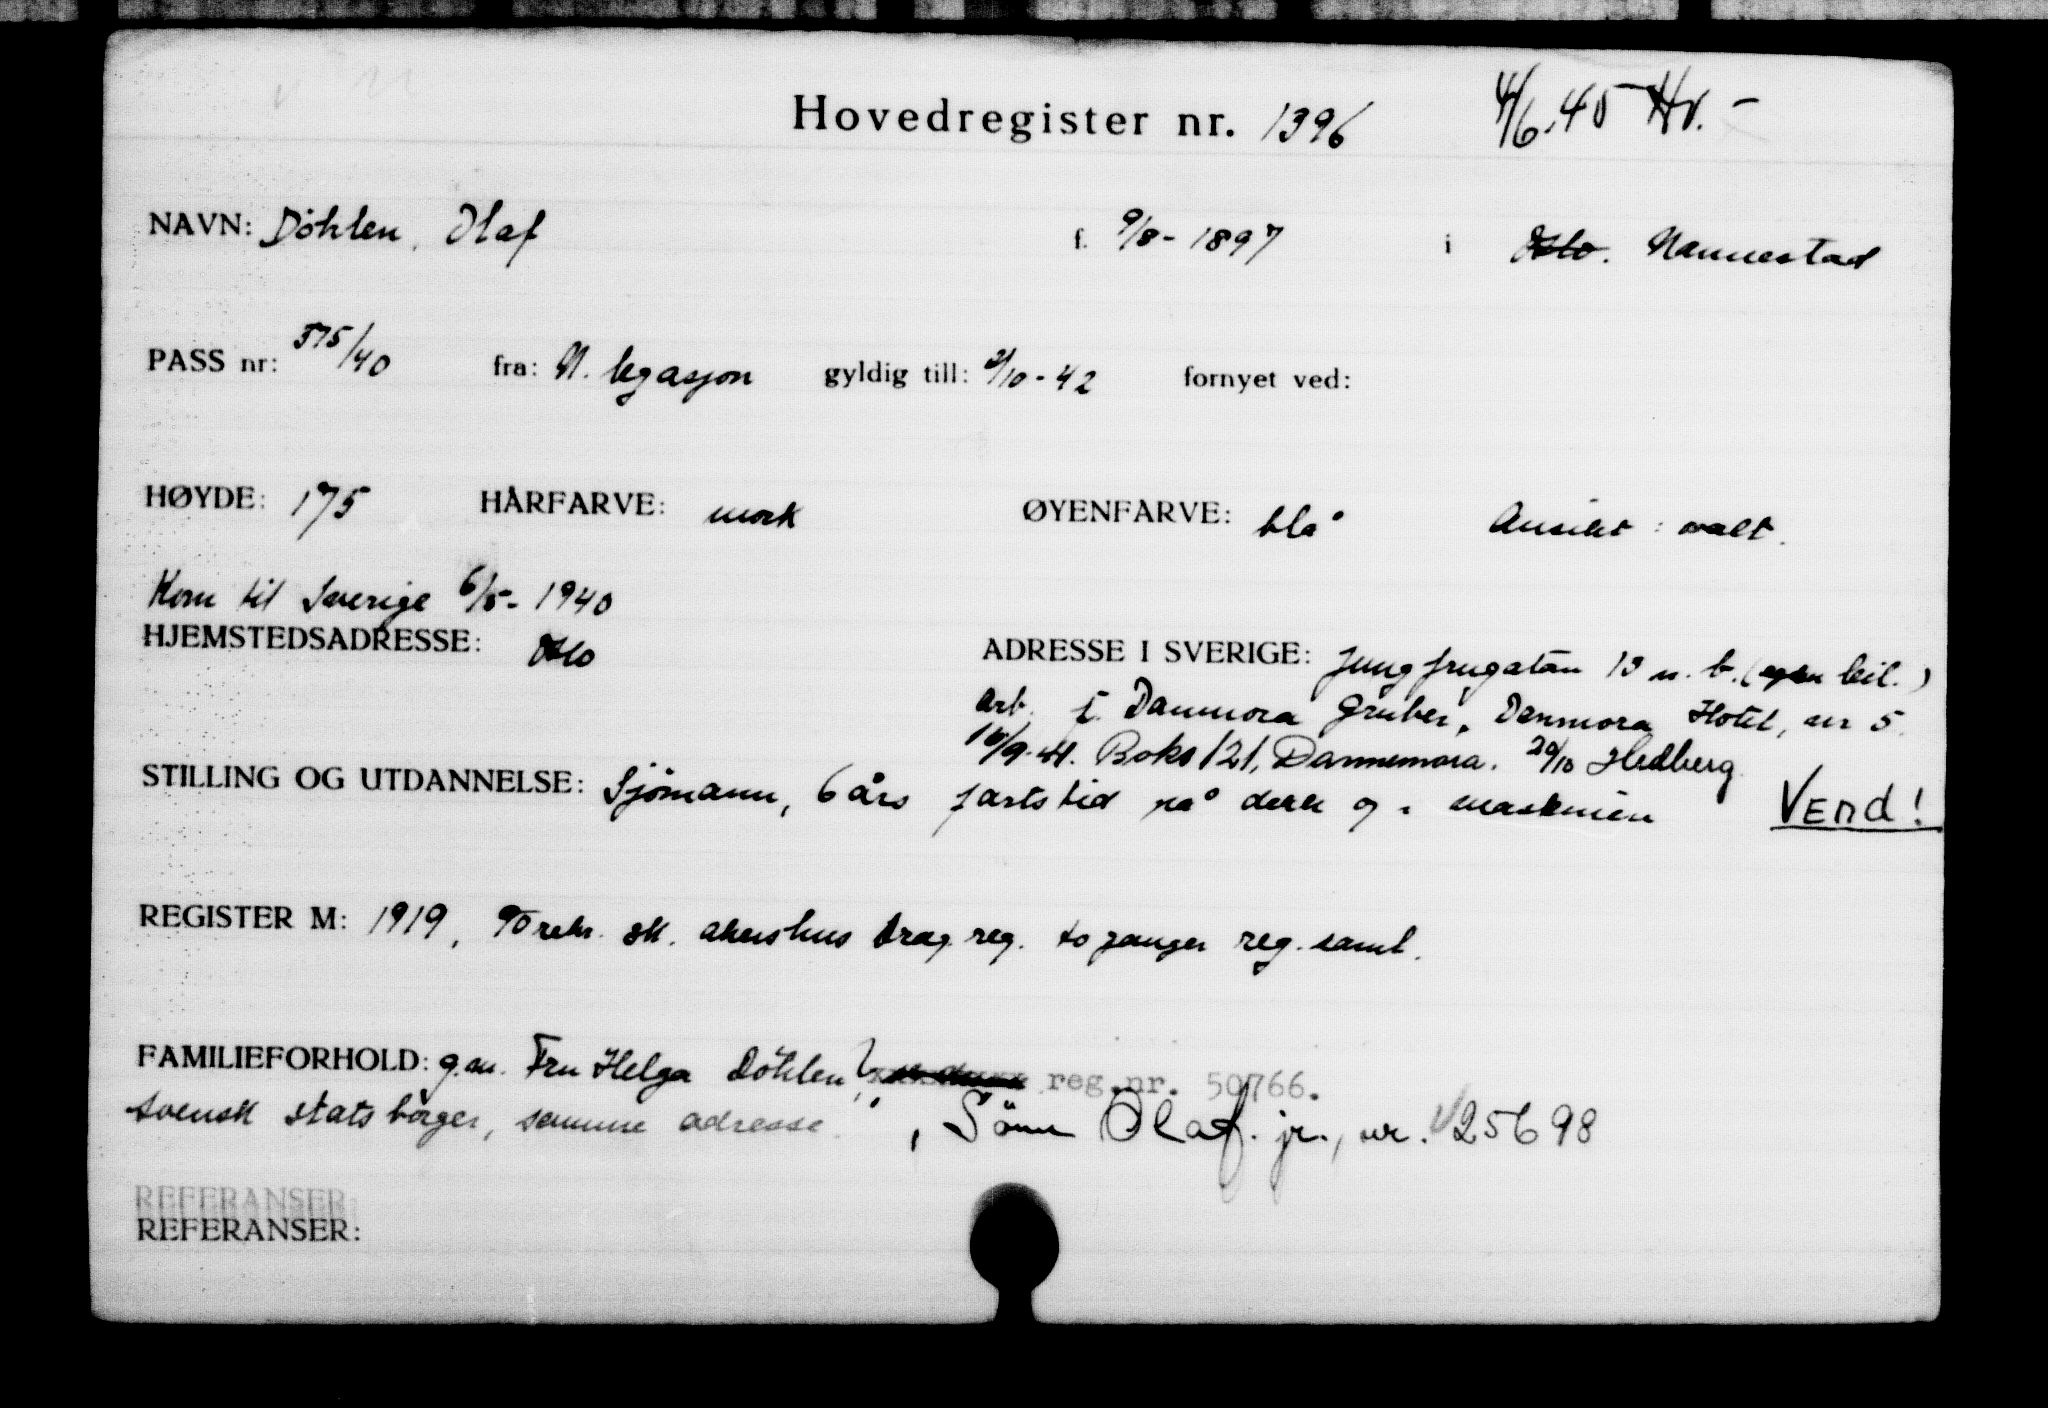 Hovedregister nr. 1396 4/6.45 Hv. -
NAVN: Döhlen, Olaf f. 9/8- 1897 i Oslo. Nannestad
PASS nr: 575/40 fra: N. legasjon gyldig till: 2/10-42 fornyet ved:
HØYDE: 175 HÅRFARVE: mörk ØYENFARVE: blå Ansikt: ovalt.
Kom til Sverige 6/5- 1940
HJEMSTEDSADRESSE: Oslo ADRESSE I SVERIGE: Jungfrugatan 13 n. b. (egen leil.)
arb. i Danmora Gruber, Danmora Hotel, nr 5.
10/9-41. Boks 121, Dannemora. 20/10 Hedberg.
STILLING OG UTDANNELSE: Sjömann, 6 års fartstid på dekk og i maskinen Vend!
REGISTER M: 1919, rekr. sk. akershus drag. reg. to ganger reg. saml.
FAMILIEFORHOLD: g.m. Fru Helga Döhlen, reg.nr. 50766.
svensk statsborger, samme adresse. , Sönn Olaf. jr., nr. 25698
REFERANSER:
REFERANSER: